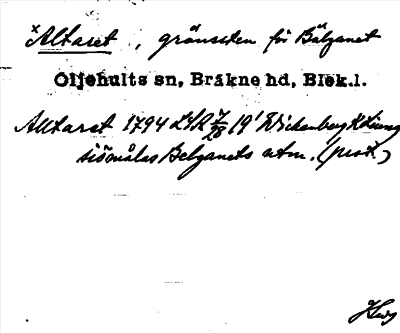 ×Altaret, gränssten för Bälganet
Oljehults sn, Bräkne hd, Blek.l.
Alltaret 1794 LSA 7/28 19' Wickenberg
sjömålas Belganets utm. (prot.)